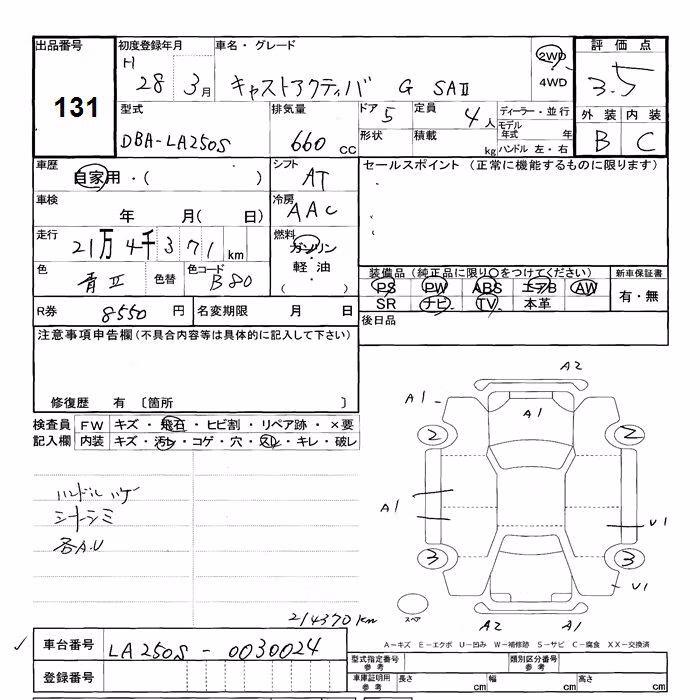 出品番号 初度登録年月 車名・グレード 評価点
131
H 28 3月 キャストアクティバ G SAⅡ 2WD 4WD 3.5
型式 排気量 ドア 5 定員 4人 ディーラー・並行 外装 内装
DBA-LA250S 660cc 形状 積載 kg モデル年式 年 B C
ハンドル 左・右
車歴 自家用・( ) シフト AT セールスポイント (正常に機能するものに限ります)
車検 年 月( 日) 冷房 AAC
走行 21万4千371km 燃料 ガソリン
軽油
( )
色 青Ⅱ 色替 色コード B80
装備品(純正品に限り○をつけてください) 新車保証書
PS PW ABS エアB AW 有・無
SR ナビ TV 本革
R券 8550円 名変期限 月 日 後日品
注意事項申告欄(不具合内容等は具体的に記入して下さい)
修復歴 有 〔箇所 〕
検査員 FW キズ・飛石・ヒビ割・リペア跡・×要
記入欄 内装 キズ・汚レ・コゲ・穴・スレ・キレ・破レ
ハンドルハゲ
シートシミ
各A.U
A2
A1 A1
2 2
A1 U1
3 3
U1
スペア
A2 A1
214370km
A-キズ E-エクボ U-凹み W-補修跡 S-サビ C-腐食 XX-交換済
✓ 車台番号 LA250S-0030024
型式指定番号 参考 類別区分番号 参考
登録番号 車庫証明用 参考 長さ cm 幅 cm 高さ cm